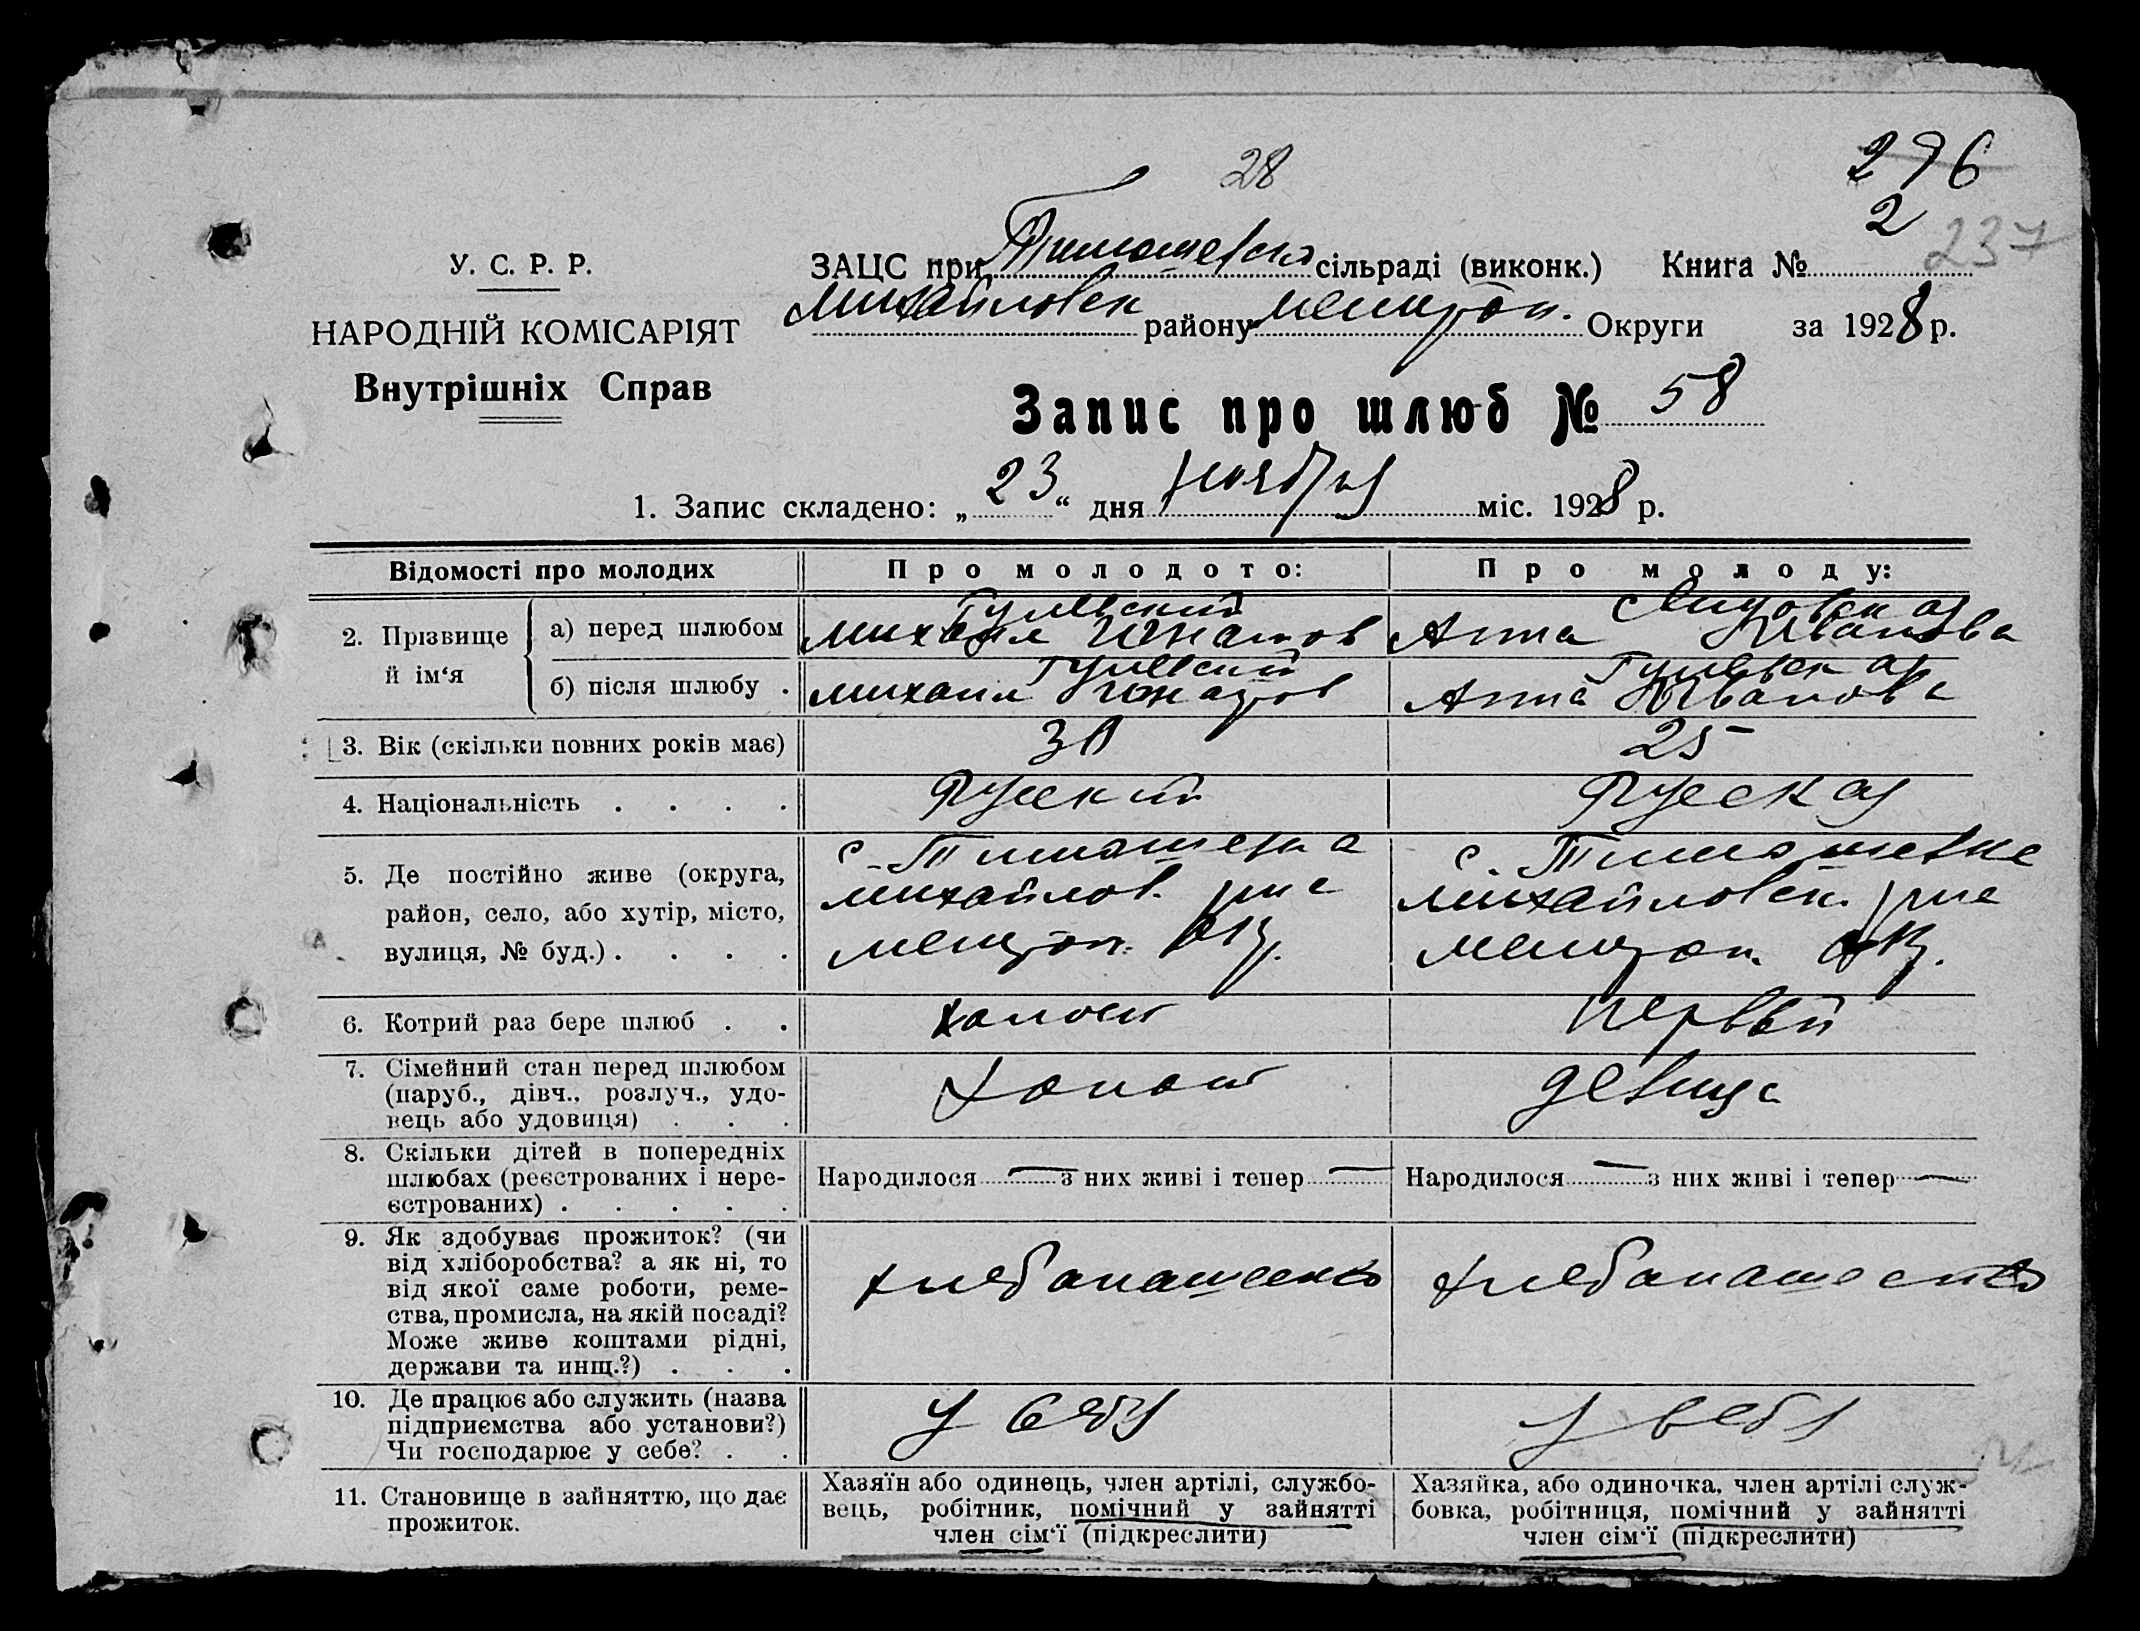 28
296
2
237
У. С. Р. Р.
НАРОДНІЙ КОМІСАРІЯТ
Внутрішніх Справ
ЗАЦС при Тимошевской сільраді (виконк.) Книга №
Михайловск району Мелитоп. Округи за 1928 р.
Запис про шлюб № 58
1. Запис складено: „23“ дня ноября міс. 1928 р.
Відомості про молодих
Про молодото:
Про молоду:
2. Прізвище й ім‘я
а) перед шлюбом
Гулевский
Михаил Игнатов
Анна Иванова
б) після шлюбу .
Гулевский
Михаил Игнатов
Гулевская
Анна Иванова
3. Вік (скільки повних років має)
30
25
4. Національність . . . .
Руский
Русская
5. Де постійно живе (округа, район, село, або хутір, місто, вулиця, № буд.) . . . .
с. Тимошевка
Михайлов. р-на
Мелитоп. окр.
с. Тимошевка
Михайловск. р-на
Мелитоп. окр.
6. Котрий раз бере шлюб . .
холост
первый
7. Сімейний стан перед шлюбом
(паруб., дівч., розлуч., удо-
вець або удовиця) . . .
холост
девица
8. Скільки дітей в попередніх
шлюбах (реєстрованих і нере-
єстрованих) . . . . .
Народилося — з них живі і тепер —
Народилося — з них живі і тепер —
9. Як здобуває прожиток? (чи
від хліборобства? а як ні, то
від якої саме роботи, реме-
ства, промисла, на якій посаді?
Може живе коштами рідні,
держави та инщ.?) . . .
хлебопашество
хлебопашество
10. Де працює або служить (назва
підприємства або установи?)
Чи господарює у себе? . .
у себя
у себя
11. Становище в зайняттю, що дає
прожиток.
Хазяїн або одинець, член артілі, службо-
вець, робітник, помічний у зайнятті
член сім‘ї (підкреслити)
Хазяйка, або одиночка, член артілі служ-
бовка, робітниця, помічний у зайнятті
член сім‘ї (підкреслити)